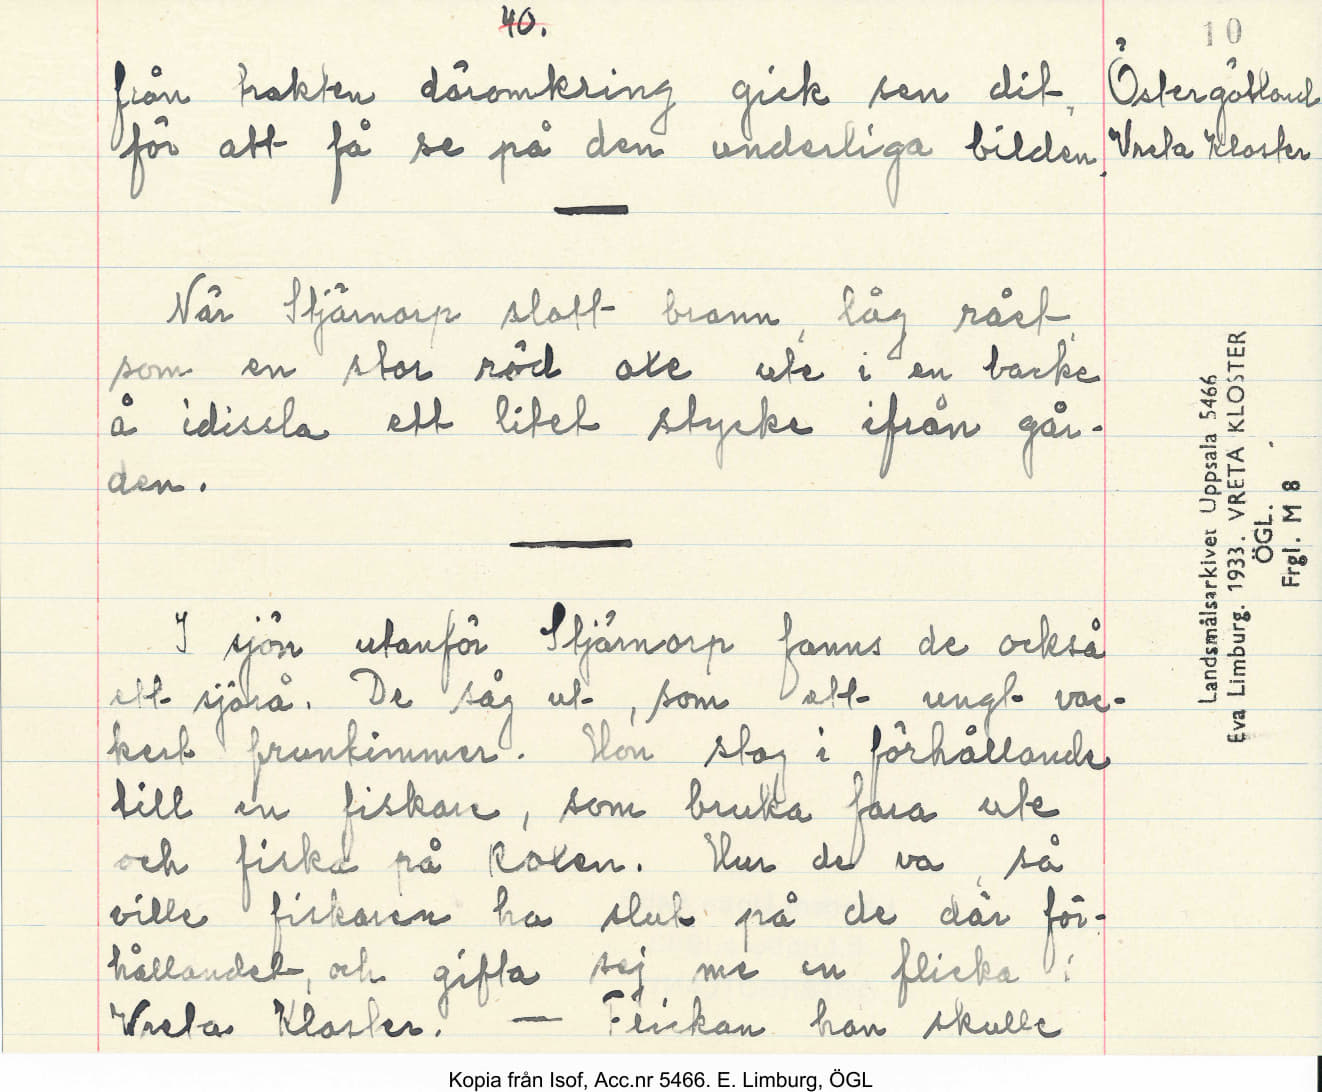 40.
10
från trakten däromkring gick sen dit,
för att få se på den underliga bilden.
Östergötland
Vreta Kloster
När Stjärnorp slott brann, låg rået,
som en stor röd oxe ute i en backe
å idissla ett litet stycke ifrån går-
den.
I sjön utanför Stjärnorp fanns de också
ett sjörå. De såg ut, som ett ungt vac-
kert fruntimmer. Hon stog i förhållande
till en fiskare, som bruka fara ute
och fiska på Roxen. Hur de va, så
ville fiskaren ha slut på de där för-
hållandet, och gifta sej me en flicka i
Vreta Kloster. — Flickan han skulle
Landsmålsarkivet Uppsala 5466
Eva Limburg. 1933. VRETA KLOSTER
ÖGL.
Frgl. M 8
Kopia från Isof, Acc.nr 5466. E. Limburg, ÖGL